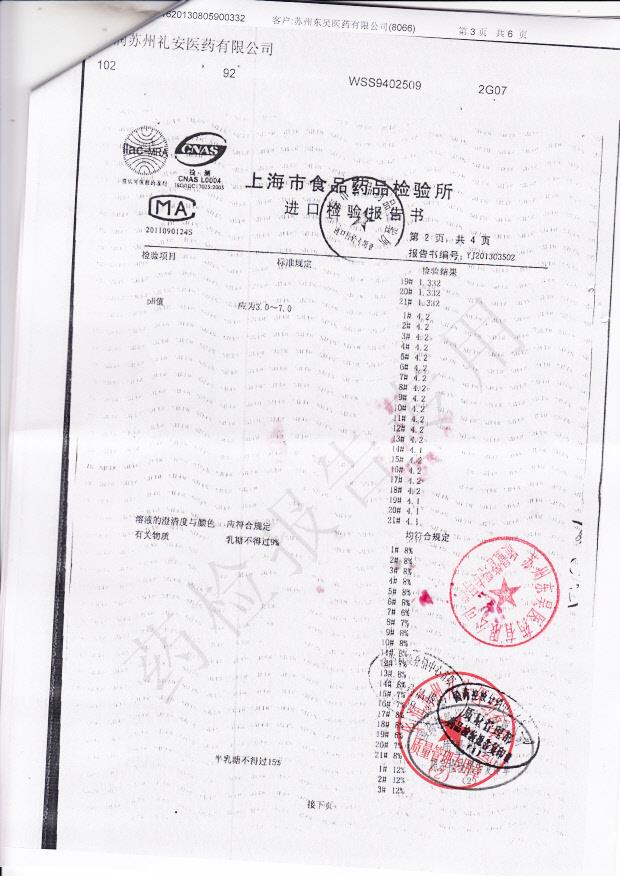 620130805900332 客户:苏州东吴医药有限公司(8066) 第 3 页 共 6 页
苏州礼安医药有限公司
102 92 WSS9402509 2G07
ilac-MRA CNAS
检 测
CNAS L0004
ISO/IEC 17025:2005
MA
2011090124S
上海市食品药品检验所
进口检验报告书
第 2 页, 共 4 页
报告书编号: YJ201303502
检验项目 标准规定 检验结果
19# 1.332
20# 1.332
21# 1.332
pH值 应为3.0~7.0 1# 4.2
2# 4.2
3# 4.2
4# 4.2
5# 4.2
6# 4.2
7# 4.2
8# 4.2
9# 4.2
10# 4.2
11# 4.2
12# 4.2
13# 4.2
14# 4.1
15# 4.2
16# 4.2
17# 4.2
18# 4.2
19# 4.1
20# 4.1
21# 4.1
溶液的澄清度与颜色 应符合规定 均符合规定
有关物质 乳糖不得过9% 1# 8%
2# 8%
3# 8%
4# 8%
5# 8%
6# 8%
7# 6%
8# 7%
9# 8%
10# 8%
11# 8%
12# 7%
13# 8%
14# 8%
15# 7%
16# 7%
17# 8%
18# 8%
19# 6%
20# 7%
21# 8%
半乳糖不得过15% 1# 12%
2# 12%
3# 12%
接下页
药检报告专用
苏州东吴医药有限公司
质量管理专用章
(2)